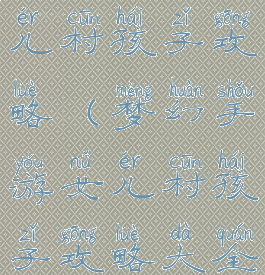 ér cūn hái zǐ gōng
儿村孩子攻
lüè mèng huàn shǒu
略(梦幻手
yóu nǚ ér cūn hái
游女儿村孩
zǐ gōng lüè dà quán
子攻略大全